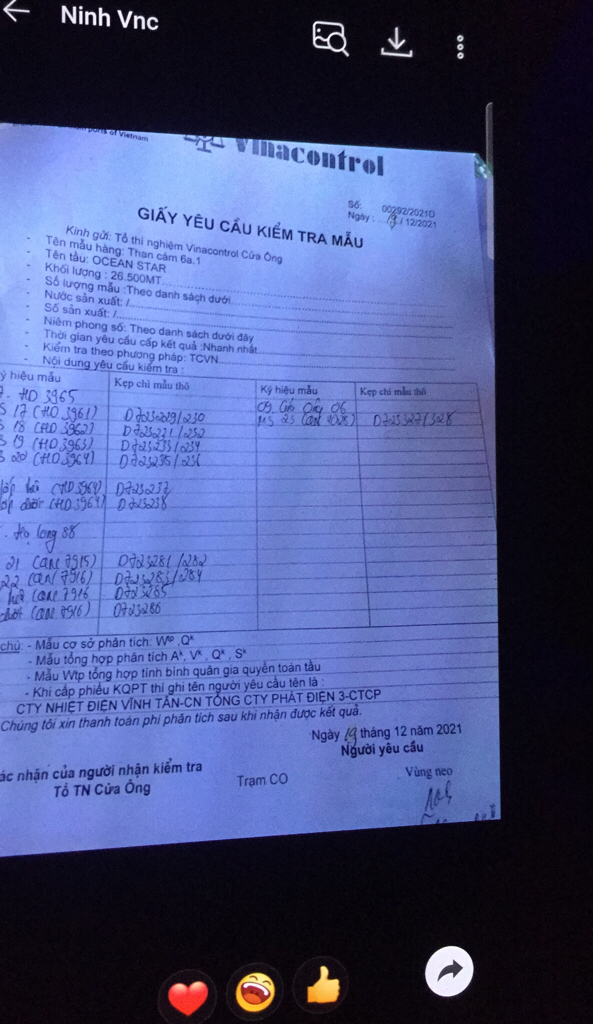 Ninh Vnc
ports of Vietnam
Vinacontrol
Số: 00292/2021D
Ngày : 19 / 12/2021
GIẤY YÊU CẦU KIỂM TRA MẪU
Kính gửi: Tổ thí nghiệm Vinacontrol Cửa Ông
- Tên mẫu hàng: Than cám 6a.1
- Tên tầu: OCEAN STAR
- Khối lượng : 26.500MT
- Số lượng mẫu :Theo danh sách dưới
- Nước sản xuất: /
- Số sản xuất: /
- Niêm phong số: Theo danh sách dưới đây
- Thời gian yêu cầu cấp kết quả :Nhanh nhất
- Kiểm tra theo phương pháp: TCVN
- Nội dung yêu cầu kiểm tra :
ý hiệu mẫu Kẹp chì mẫu thô Ký hiệu mẫu Kẹp chì mẫu thô
HD 3965
17 (HD 3961) D723229/230 MS 23 D723327/328
18 (HD 3962) D723231/232
19 (HD 3963) D723233/234
20 (HD 3964) D723235/236
(HD 3964) D723237
dưới (HD 3964) D723238
Hạ long 88
21 (QN 7915) D723281/282
22 (QN 7916) D723283/284
(QN 7916 D723285
(QN 7916) D723286
chú: - Mẫu cơ sở phân tích: Wᵗᵖ ,Qᵏ
- Mẫu tổng hợp phân tích Aᵏ, Vᵏ , Qᵏ , Sᵏ
- Mẫu Wtp tổng hợp tính bình quân gia quyền toàn tầu
- Khi cấp phiếu KQPT thì ghi tên người yêu cầu tên là :
CTY NHIỆT ĐIỆN VĨNH TÂN-CN TỔNG CTY PHÁT ĐIỆN 3-CTCP
Chúng tôi xin thanh toán phí phân tích sau khi nhận được kết quả.
Ngày 19 tháng 12 năm 2021
Người yêu cầu
ác nhận của người nhận kiểm tra
Tổ TN Cửa Ông
Trạm CO
Vùng neo